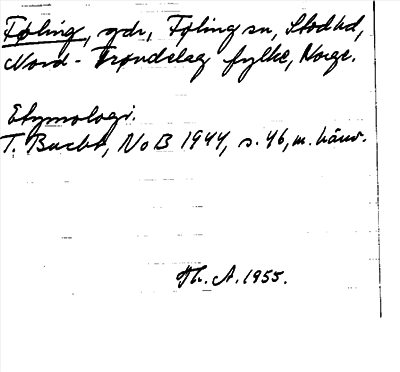 Føling, gdr, Føling sn, Stod hd,
Nord-Trøndelag fylke, Norge.
Etymologi.
T. Bucht, NoB 1944, s. 46, m. hänv.
Th. A. 1955.